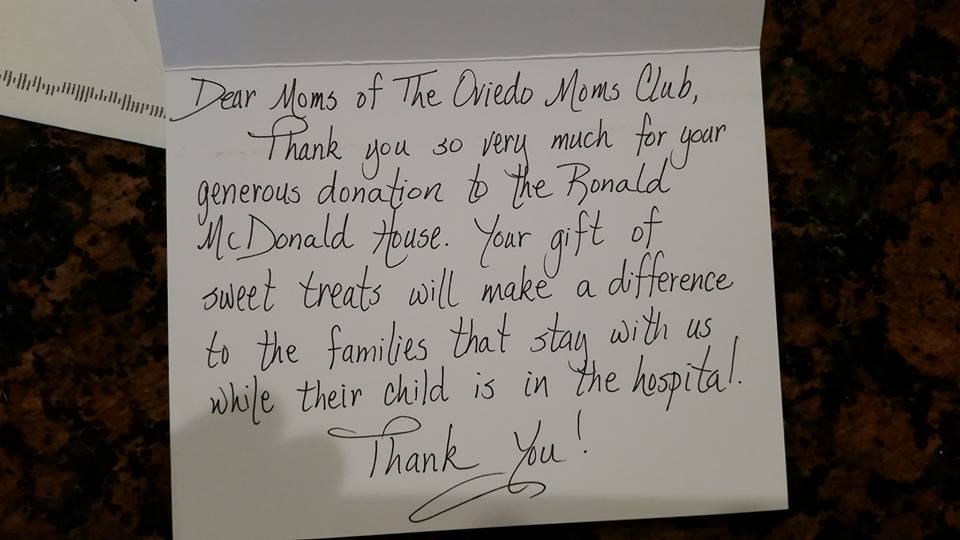 Dear Moms of The Oviedo Moms Club,
Thank you so very much for your
generous donation to the Ronald
McDonald House. Your gift of
sweet treats will make a difference
to the families that stay with us
while their child is in the hospital.
Thank You!